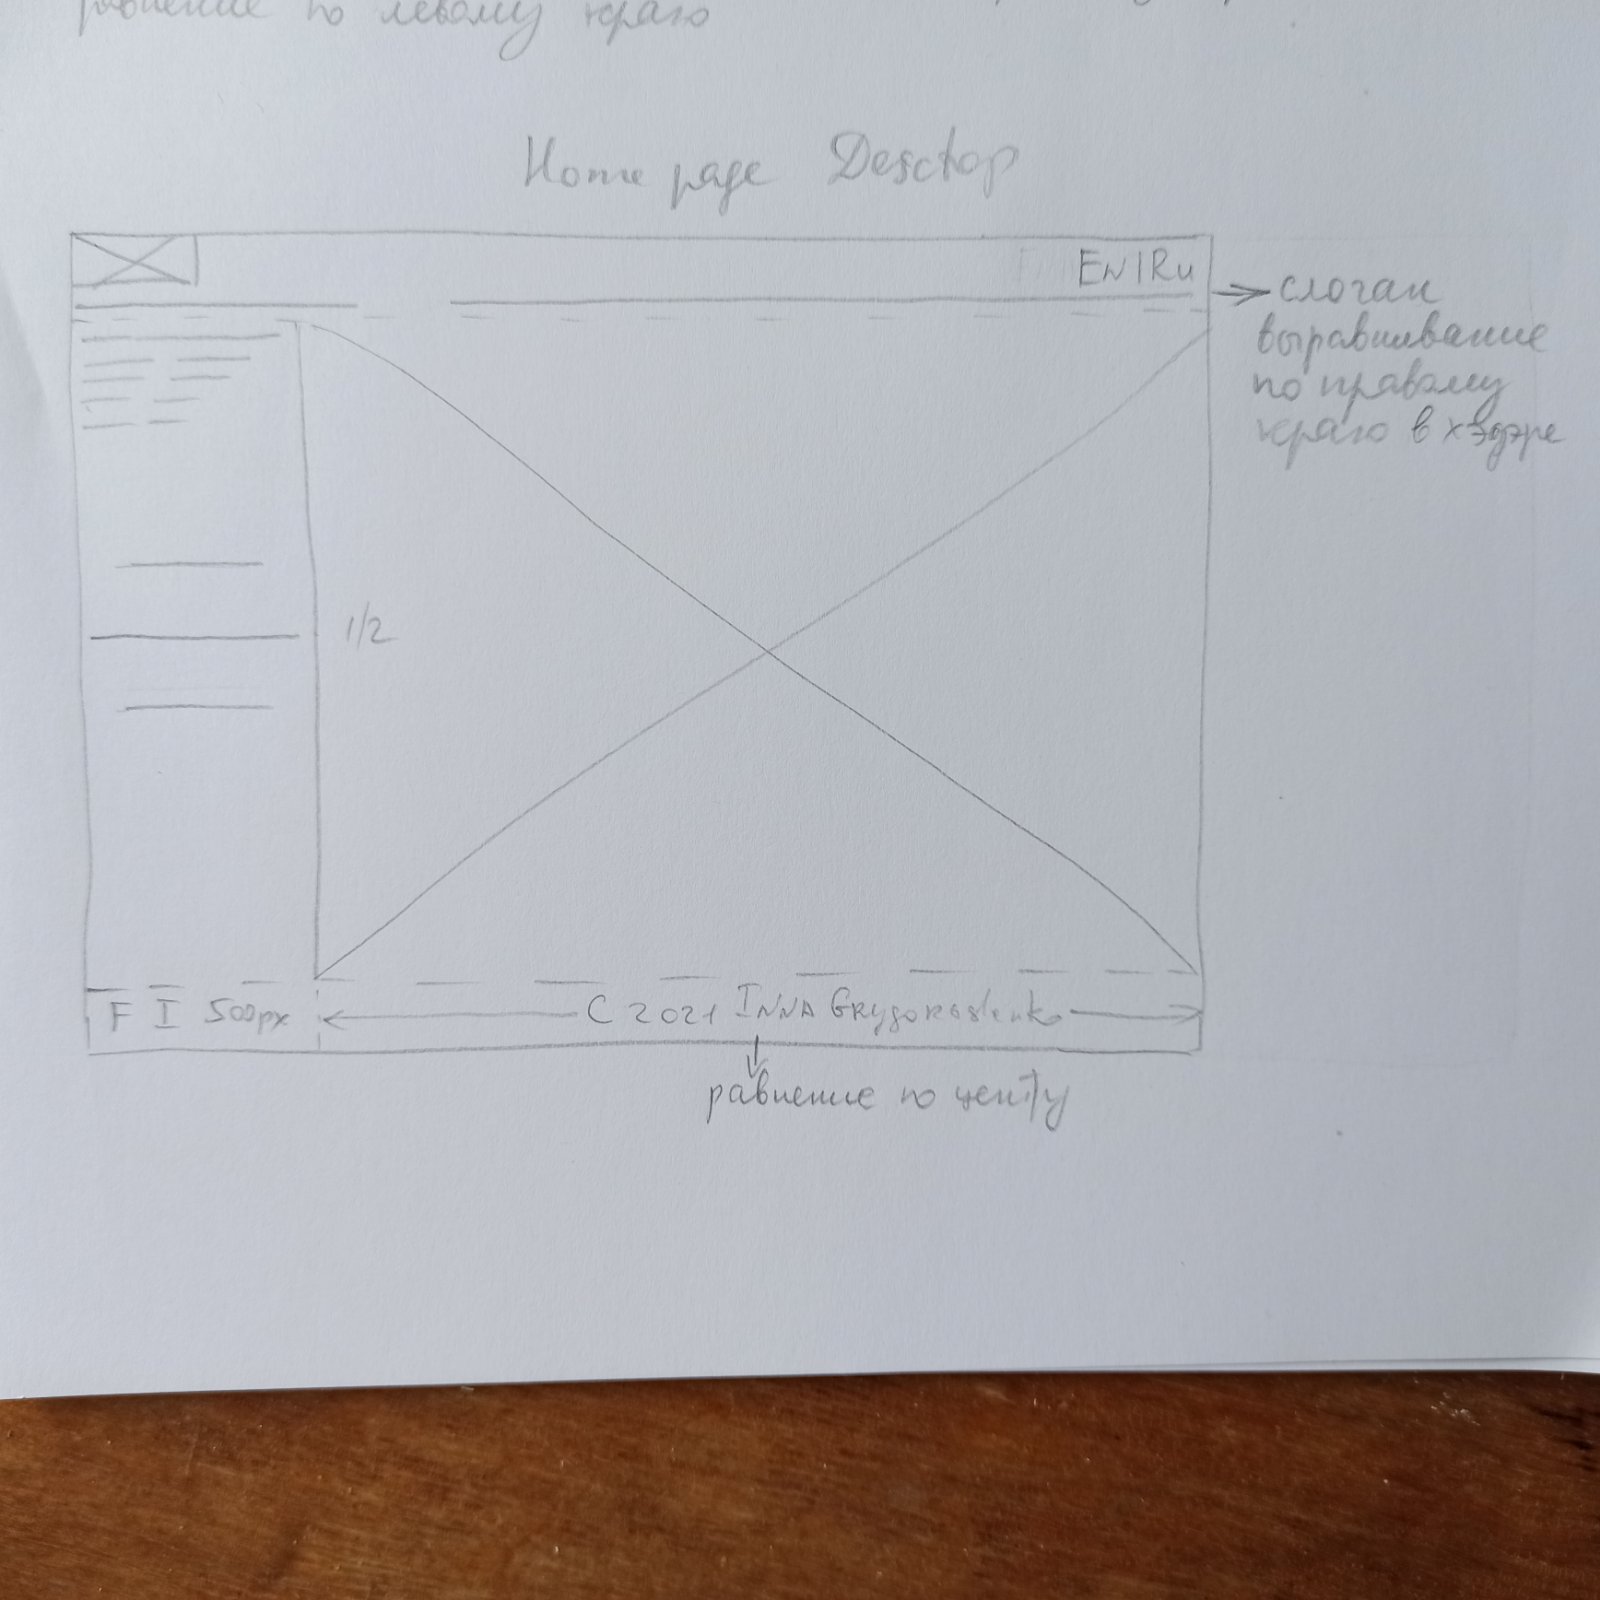 равнение по левому краю
Home page Desctop
EN|Ru
слоган
выравнивание
по правому
краю в хэдэре
1/2
F I 500px
C 2021 INNA
равнение по центу